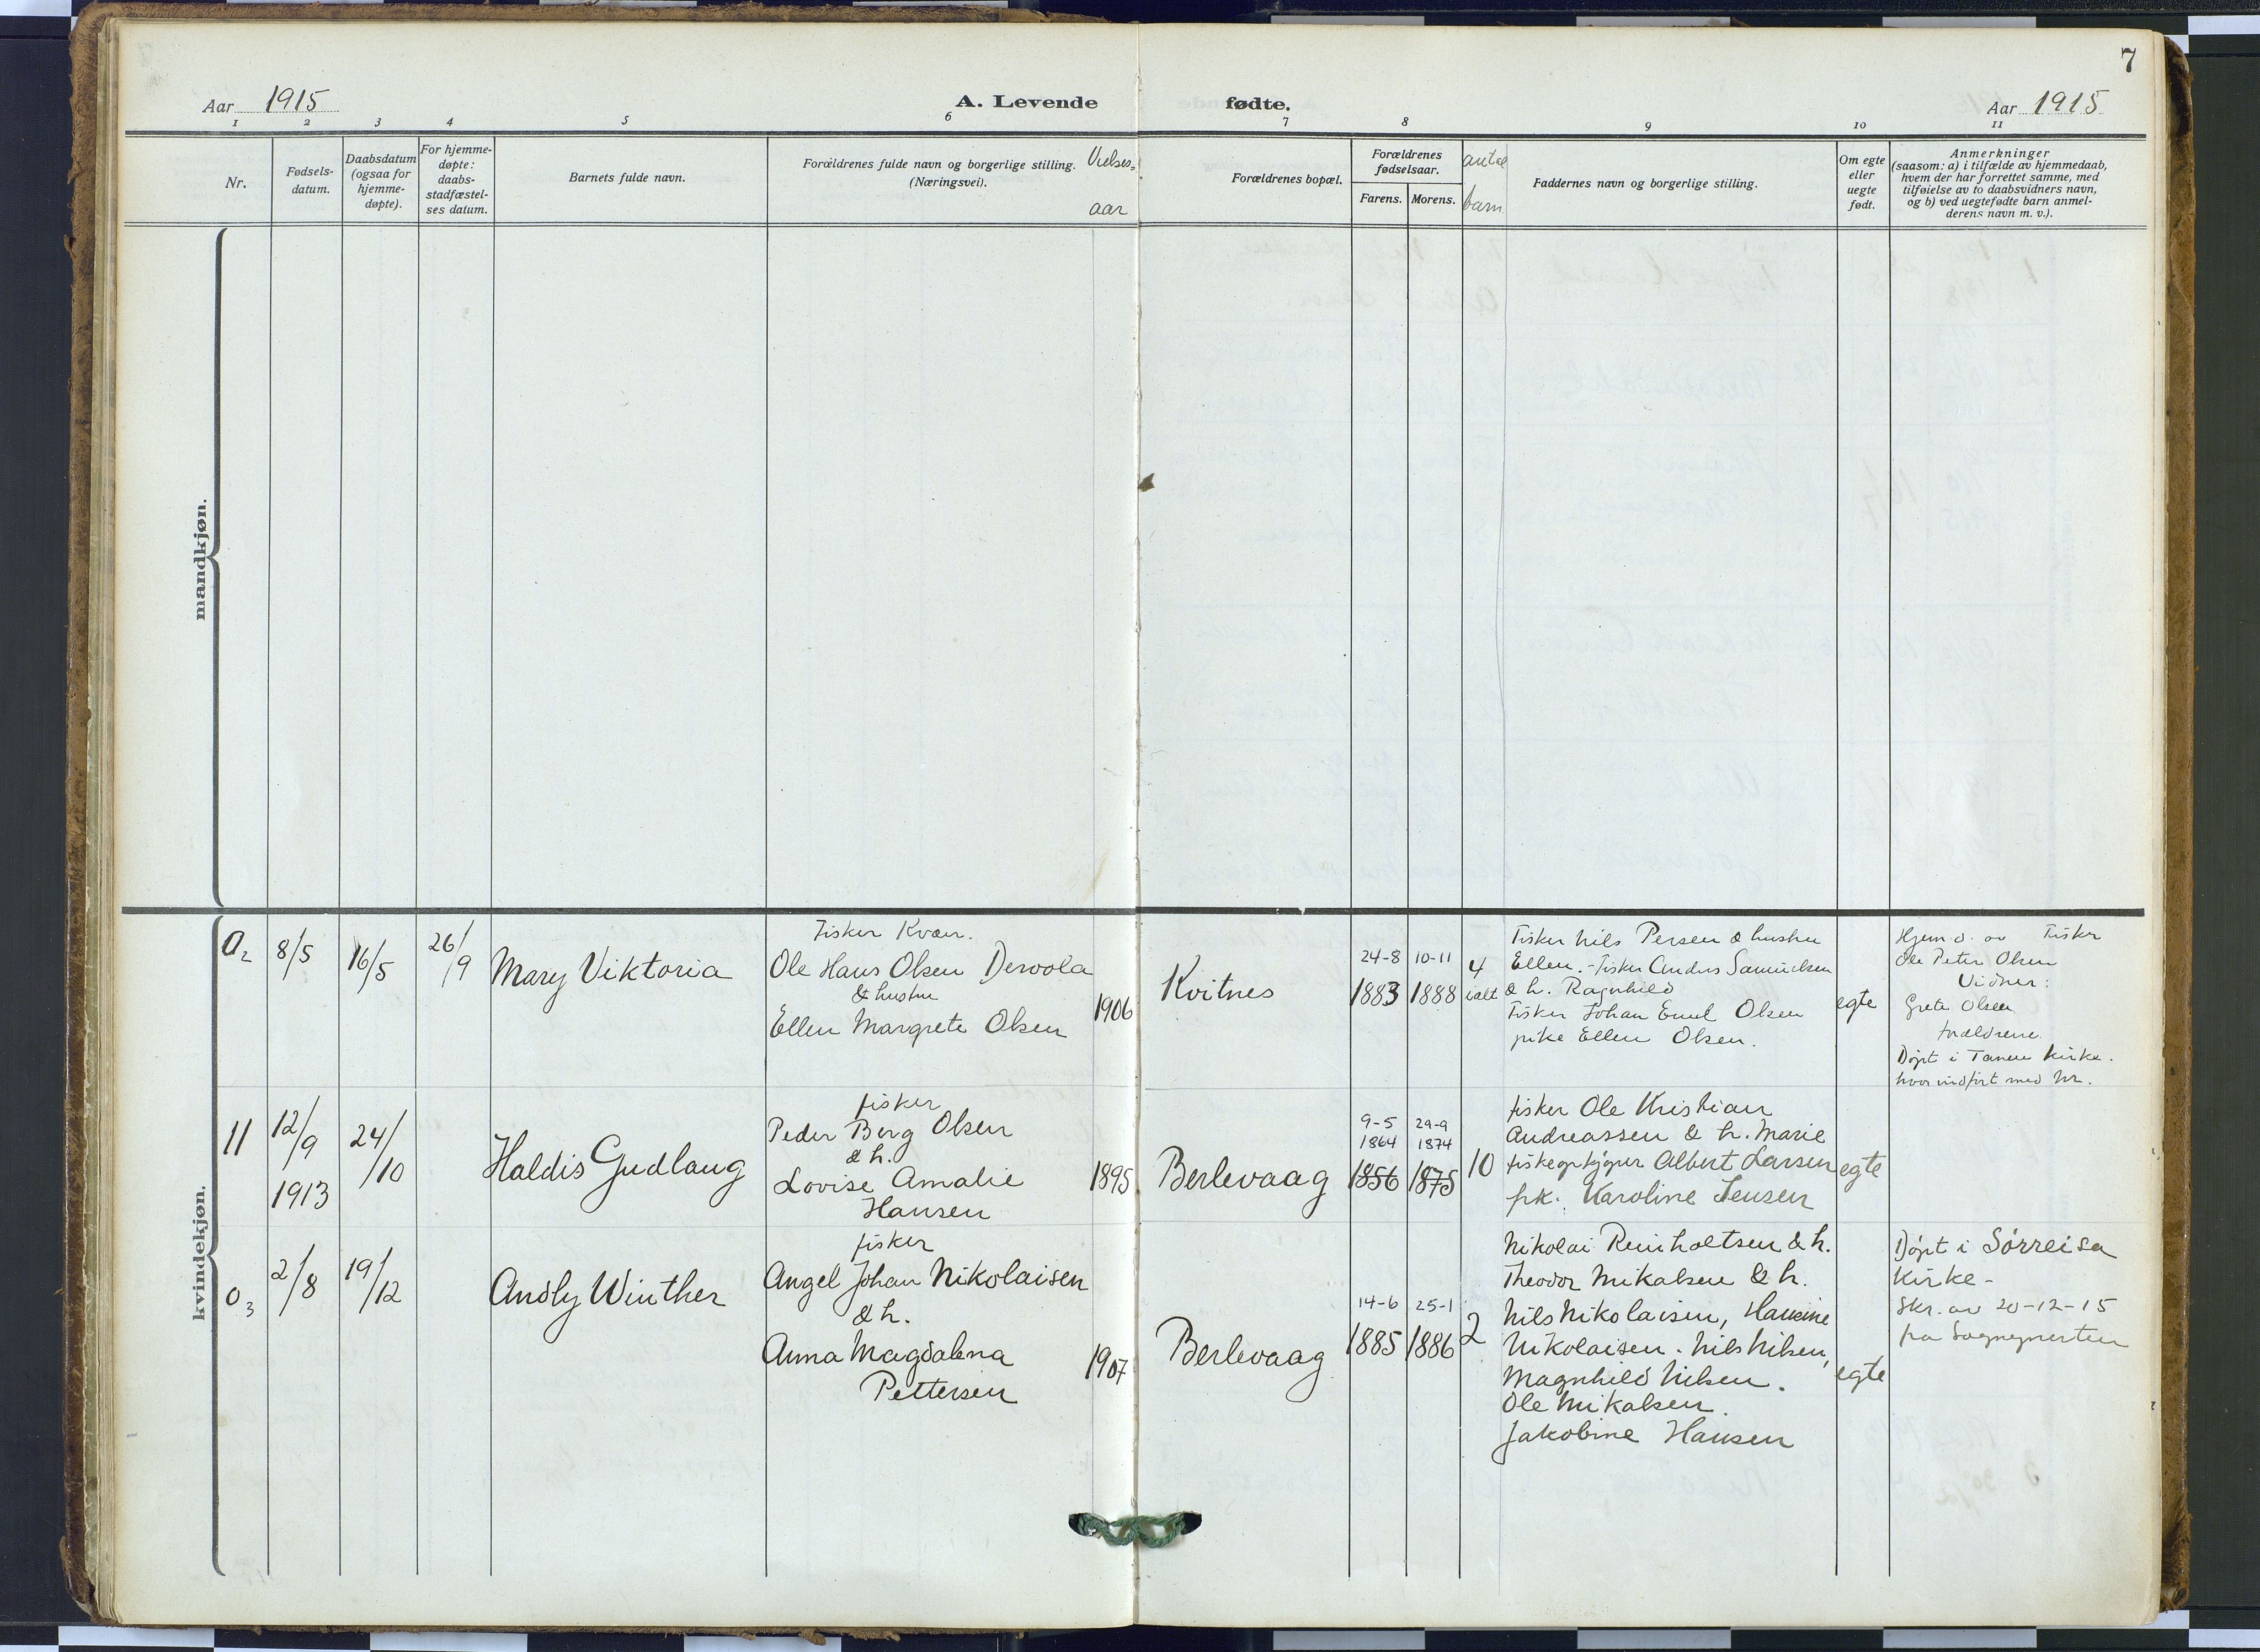 7
Aar 1915
A. Levende fødte.
Aar 1915
1 2 3 4 5 6 7 8 9 10 11
Nr.
Fødsels-
datum.
Daabsdatum
(ogsaa for
hjemme-
døpte).
For hjemme-
døpte:
daabs-
stadfæstel-
ses datum.
Barnets fulde navn.
Forældrenes fulde navn og borgerlige stilling.
(Næringsvei).
Vielses-
aar
Forældrenes bopæl.
Forældrenes
fødselsaar.
Farens. Morens.
antal
barn
Faddernes navn og borgerlige stilling.
Om egte
eller
uegte
født.
Anmerkninger
(saasom: a) i tilfælde av hjemmedaab,
hvem der har forrettet samme, med
tilføielse av to daabsvidners navn,
og b) ved uegtefødte barn anmel-
derens navn m. v.).
mandkjøn.
kvindekjøn.
0 2
8/5
16/5
26/9
Mary Viktoria
Fisker Kvæn.
Ole Hans Olsen Dervola
& hustru
Ellen Margrete Olsen
1906
Kvitnes
24-8
1883
10-11
1888
4
ialt
Fisker Nils Persen & hustru
Ellen. - Fisker Anders Samuelsen
& h. Ragnhild
Fisker Johan Emil Olsen
pike Ellen Olsen.
egte
Hjem.d. av Fisker
Ole Peter Olsen
Vidner:
Grete Olsen
forældrene.
Døpt i Tanen Kirke.
hvor indført med Nr.
11
12/9
1913
24/10
Haldis Gudlaug
fisker
Peder Berg Olsen
& h.
Lovise Amalie
Hansen
1895
Berlevaag
9-5
1864
1856
29-9
1874
1875
10
fisker Ole Kristian
Andreassen & h. Marie
fiskeopkjøper Albert Larsen
frk. Karoline Jensen
egte
0 3
2/8
19/12
Andly Winther
fisker
Angel Johan Nikolaisen
& h.
Anna Magdalena
Pettersen
1907
Berlevaag
14-6
1885
25-1
1886
2
Nikolai Reinholtsen & h.
Theodor Mikalsen & h.
Nils Nikolaisen, Hansine
Nikolaisen. Nils Nilsen,
Magnhild Nilsen.
Ole Mikalsen.
Jakobine Hansen
egte
Døpt i Sørreisa
Kirke-
Skr. av 20-12-15
fra Sognepresten